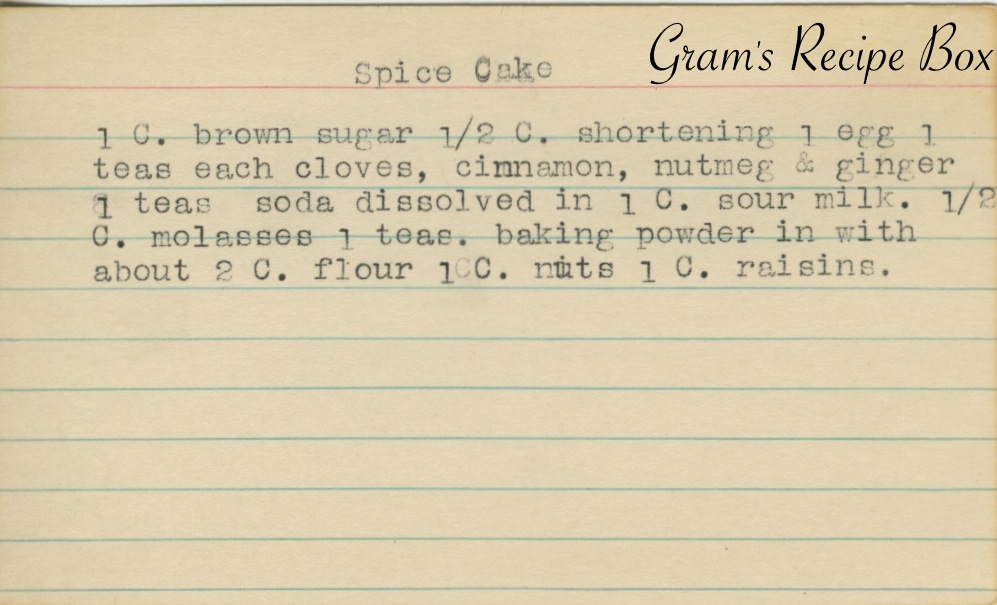 Gram's Recipe Box
Spice Cake
1 C. brown sugar 1/2 C. shortening 1 egg 1
teas each cloves, cinnamon, nutmeg & ginger
1 teas  soda dissolved in 1 C. sour milk. 1/2
C. molasses 1 teas. baking powder in with
about 2 C. flour 1 C. nuts 1 C. raisins.